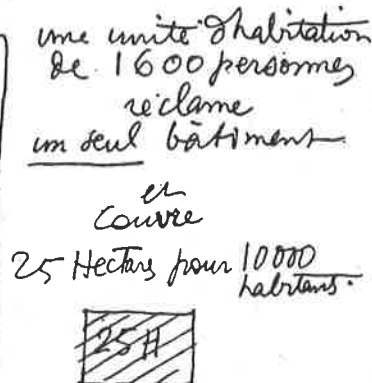 une unité d'habitation
de 1600 personnes
réclame
un seul bâtiment
et
couvre
25 Hectars pour 10000
habitans.
25 H